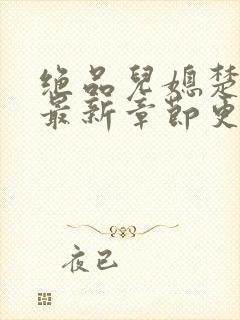 绝品儿媳楚
最新章节更
夜已